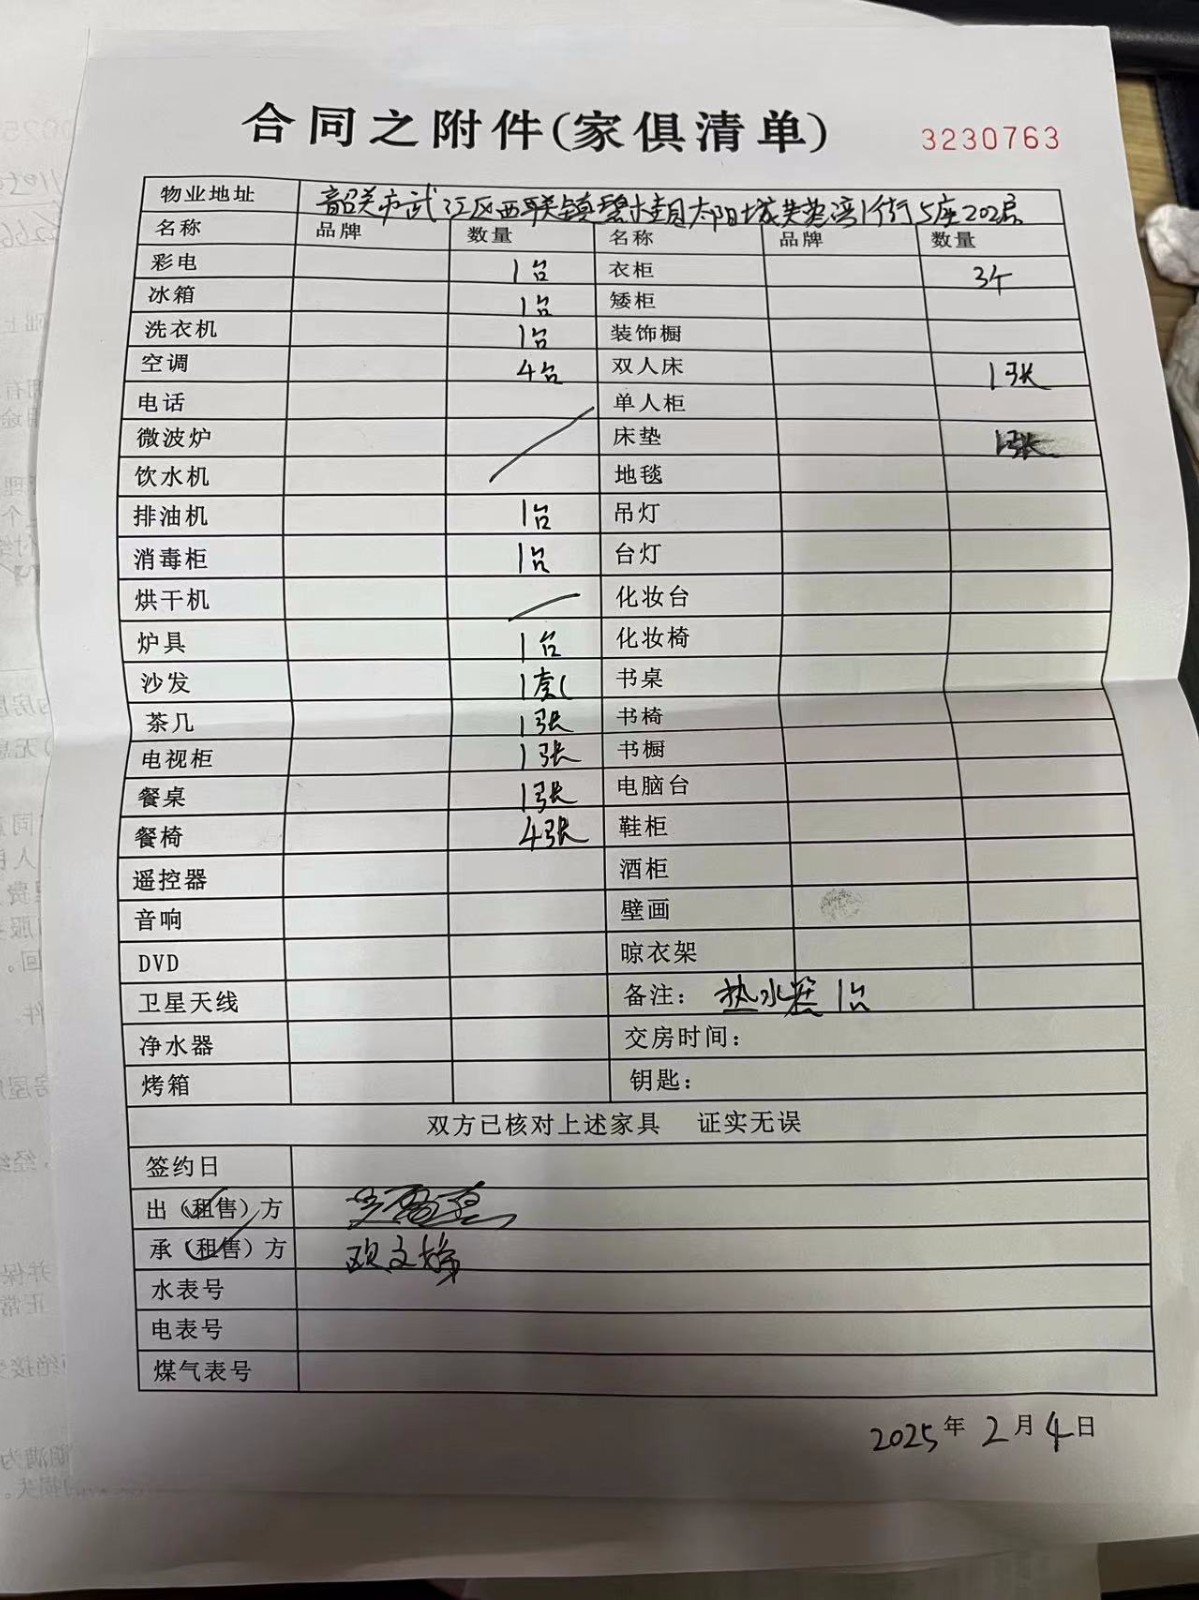 合同之附件(家俱清单) 3230763
物业地址 韶关市武江区西联镇碧桂园太阳城芙蓉湾1街5座202房
名称 品牌 数量 名称 品牌 数量
彩电 1台 衣柜 3个
冰箱 1台 矮柜
洗衣机 1台 装饰橱
空调 4台 双人床 1张
电话 单人柜
微波炉 床垫 1张
饮水机 地毯
排油机 1台 吊灯
消毒柜 1台 台灯
烘干机 化妆台
炉具 1台 化妆椅
沙发 1套 书桌
茶几 1张 书椅
电视柜 1张 书橱
餐桌 1张 电脑台
餐椅 4张 鞋柜
遥控器 酒柜
音响 壁画
DVD 晾衣架
卫星天线 备注： 热水器 1台
净水器 交房时间：
烤箱 钥匙：
双方已核对上述家具 证实无误
签约日
出（租售）方
承（租售）方
水表号
电表号
煤气表号
2025年2月4日